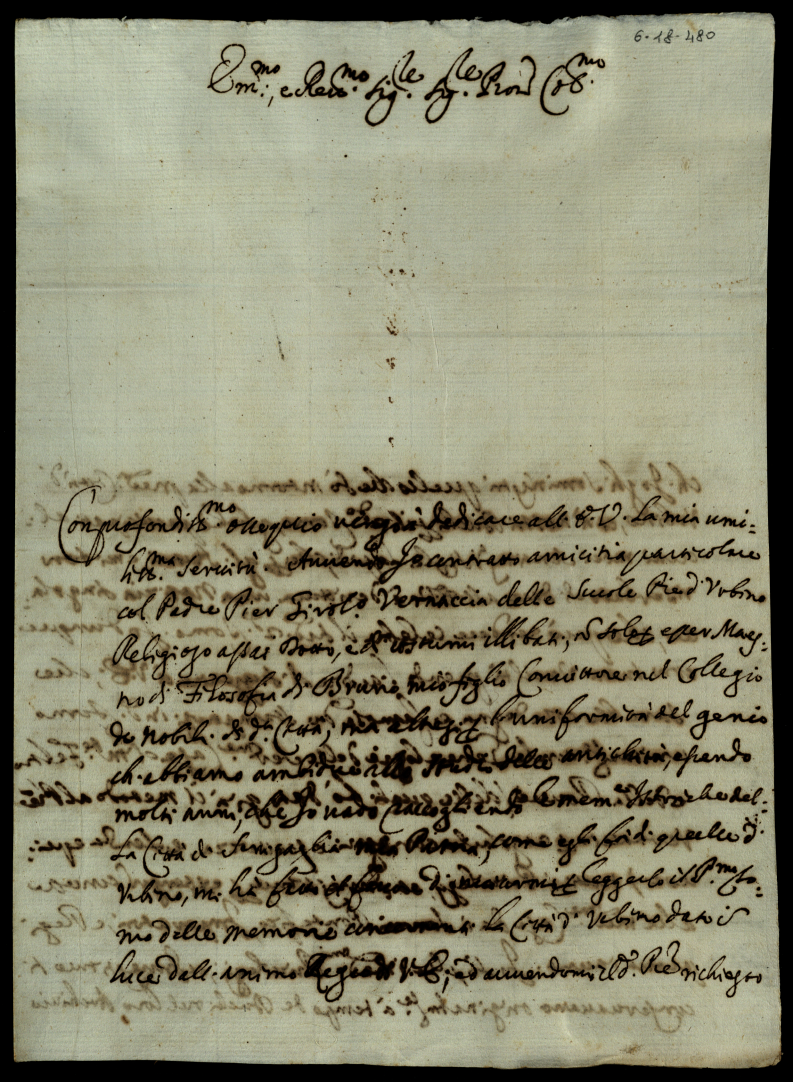 6-18-480
Em.mo, e Rev.mo Sig.le Sig.le Pron Col.mo
Con profondiss.mo ossequio vengo à dedicare all'E.V. la mia umi-
liss.ma servitù. Avvendo Io contratto amicitia particolare
col Padre Pier Girol.o Vernaccia delle Scuole Pie d'Urbino
Religioso assai dotto, e di costumi illibati, è per Maes-
tro di Filosofia di mio figlio Convittore nel Collegio
de Nobili di d.a Città, l'uniformità del genio
ch'abbiamo ambidue allo studio delle antichità, essendo
molti anni, che Io vado raccogliendo le mem.e Istoriche del-
la Città di Senigaglia mia Patria, come egli fà di quelle d'
Urbino, mi hà fatto leggerlo il P.mo To-
mo delle memorie la Città d'Urbino dato in
luce dall'animo Regio di V.E., ed avvendomi il d.o P.re richiesto